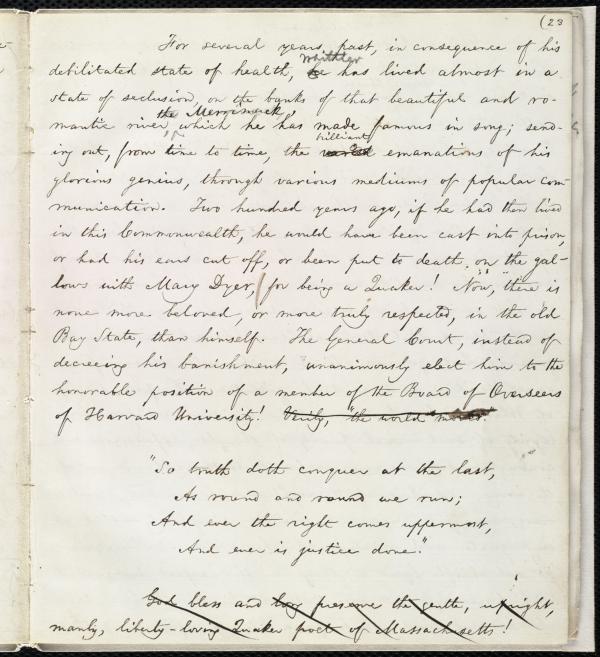 (23
For several years, past, in consequence of his
Whittier
debilitated state of health, he has lived almost in a
state of seclusion, on the banks of that beautiful and ro-
the Merrimack,
mantic river, which he has made famous in song; send-
brilliant
ing out, from time to time, the varied emanations of his
glorious genius, through various mediums of popular com-
munication. Two hundred years ago, if he had then lived
in this Commonwealth, he would have been cast into prison,
or had his ears cut off, or been put to death on the gal-
lows with Mary Dyer, for being a Quaker! Now, there is
none more beloved, or more truly respected, in the old
Bay State, than himself. The General Court, instead of
decreeing his banishment, unanimously elect him to the
honorable position of a member of the Board of Overseers
of Harvard University! Verily, "the world moves."
"So truth doth conquer at the last,
As round and round we run;
And ever the right comes uppermost,
And ever is justice done."
God bless and long preserve the gentle, upright,
manly, liberty-loving Quaker poet of Massachusetts!